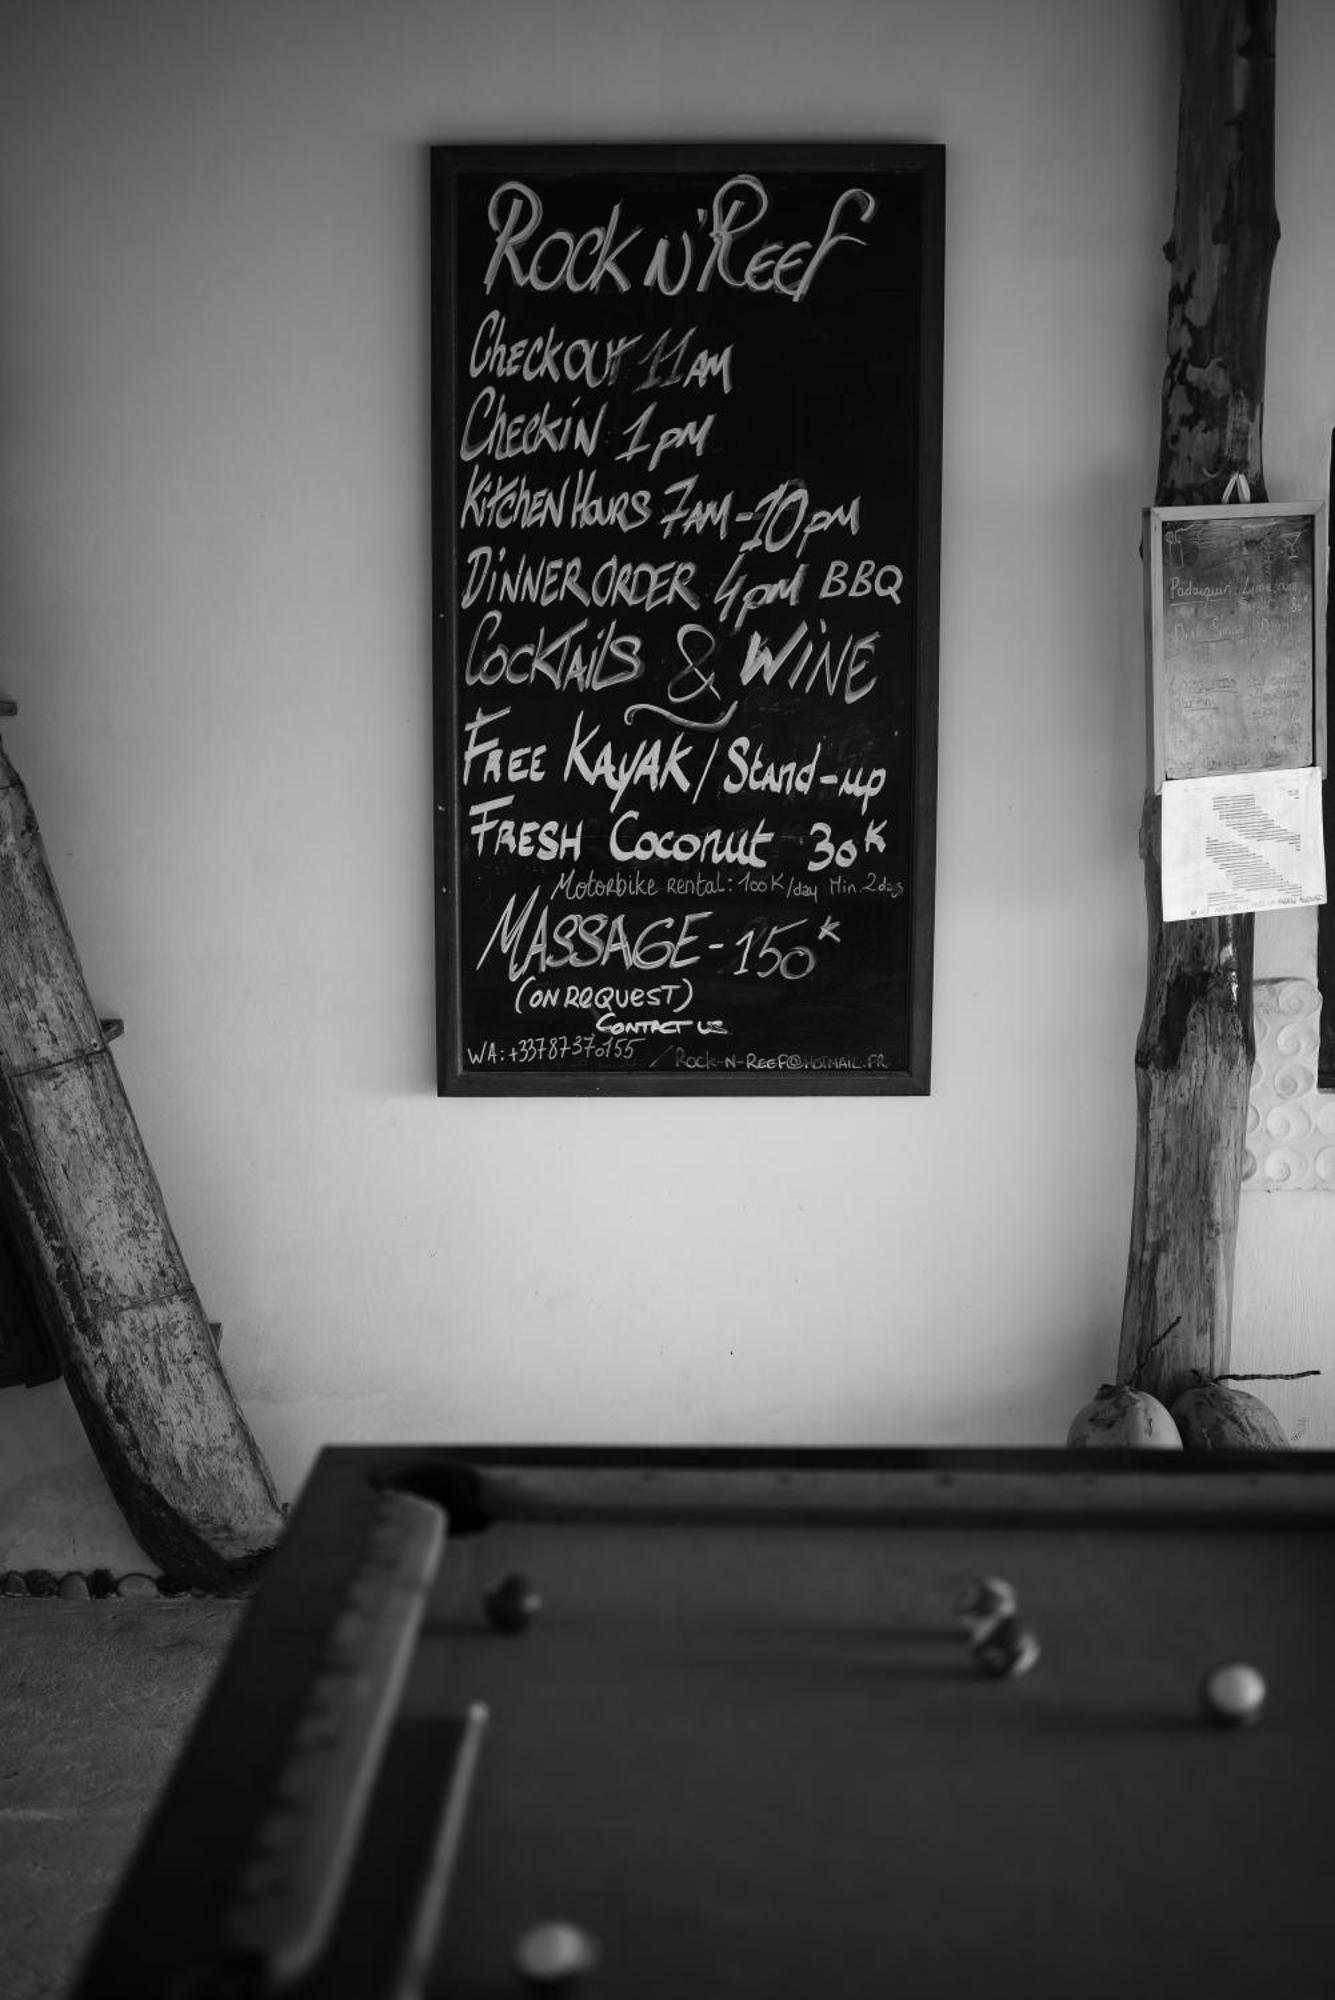 Rock n' Reef
Checkout 11am
Checkin 1pm
Kitchen Hours 7am-10pm
Dinner Order 4pm BBQ
Cocktails & Wine
Free Kayak/Stand-up
Fresh Coconut 30K
Motorbike rental: 100K/day Min. 2days
MASSAGE - 150K
(ON REQUEST)
CONTACT US
WA: +33787370155 / ROCK-N-REEF@HOTMAIL.FR